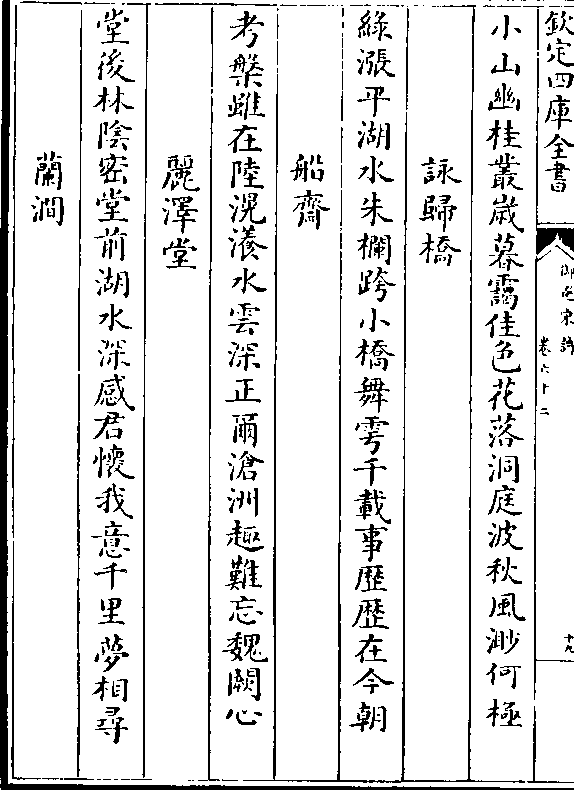 欽定四庫全書
御選宋詩
卷六十二
十九
小山幽桂叢歲暮靄佳色花落洞庭波秋風渺何極
詠歸橋
綠漲平湖水朱欄跨小橋舞雩千載事歴歴在今朝
船齋
考槃雖在陸滉瀁水雲深正爾滄洲趣難忘魏闕心
麗澤堂
堂後林陰密堂前湖水深感君懷我意千里夢相尋
蘭澗